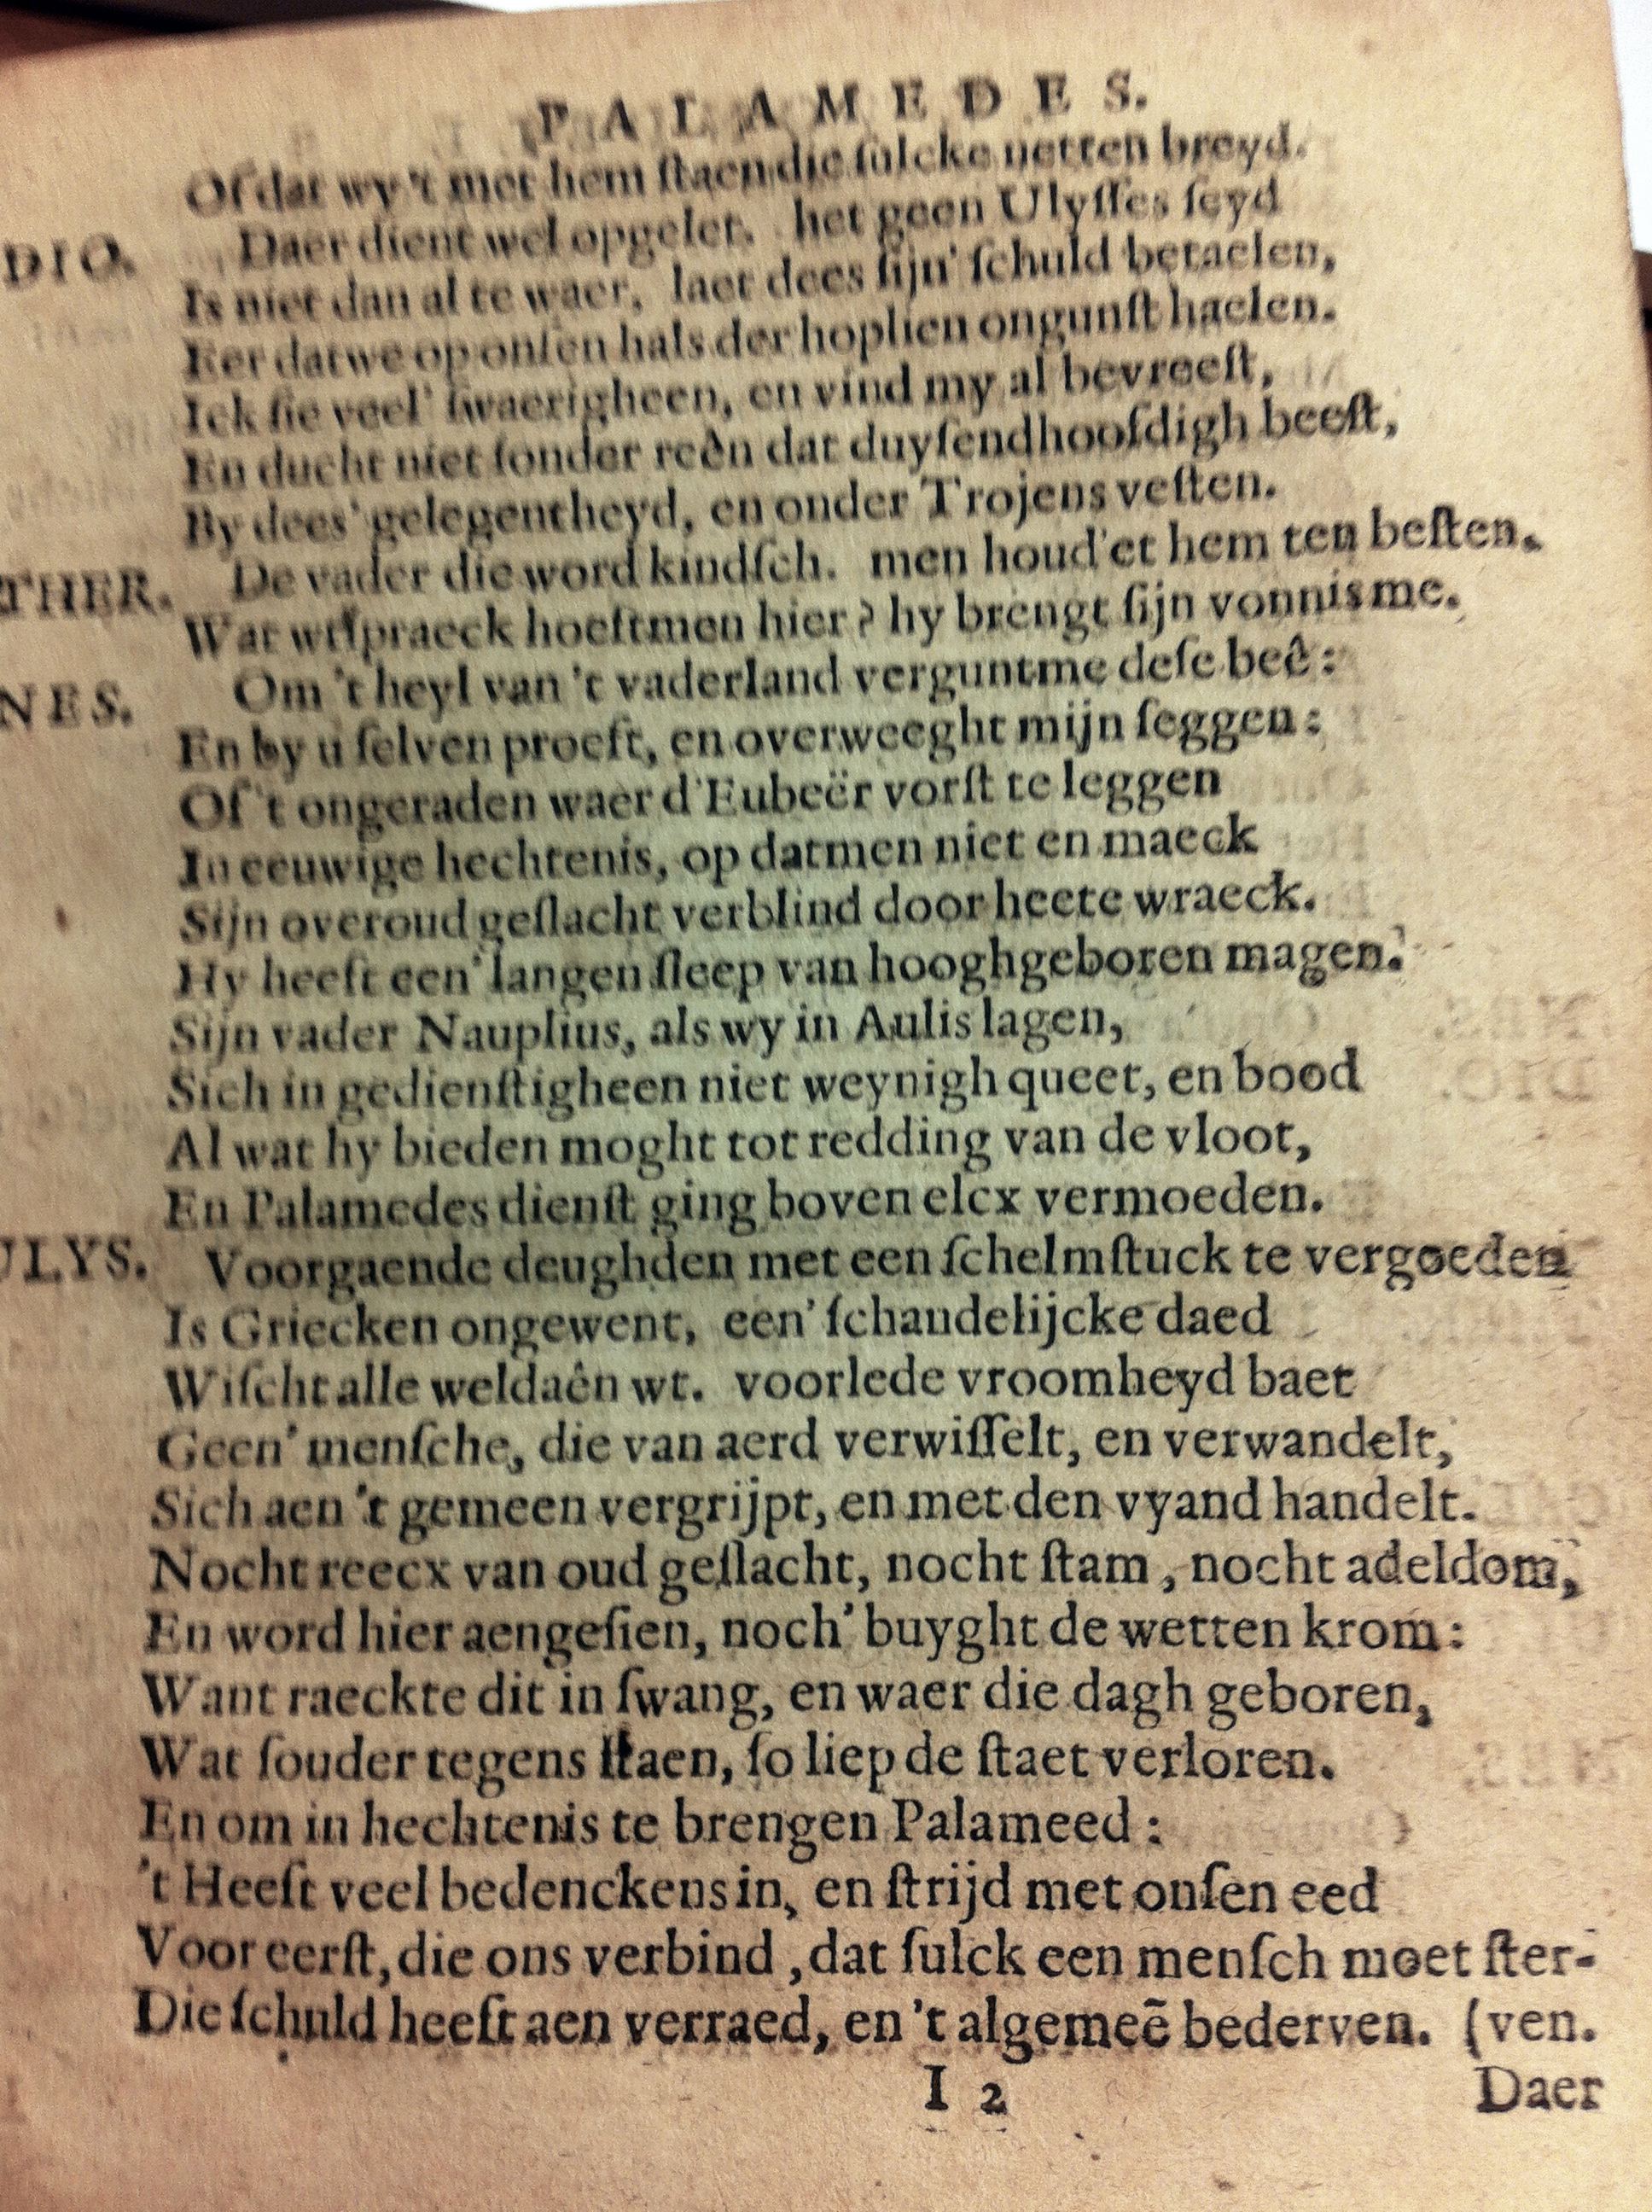 PALAMEDES.
Of dat wy 't met hem ſtaen die ſulcke netten breyd.
DIO. Daer dient wel opgelet. het geen Ulyſſes ſeyd
Is niet dan al te waer. laet dees ſijn' ſchuld betaelen,
Eer datwe op onſen hals der hoplien ongunſt haelen.
Ick ſie veel' ſwaerigheen, en vind my al bevreeſt,
En ducht niet ſonder reên dat duyſendhoofdigh beeſt,
By dees' gelegentheyd, en onder Trojens veſten.
THER. De vader die word kindſch. men houd'et hem ten beſten.
Wat wtſpraeck hoeftmen hier? hy brengt ſijn vonnis me.
NES. Om 't heyl van 't vaderland verguntme deſe beê:
En by u ſelven proeft, en overweeght mijn ſeggen:
Of 't ongeraden waer d'Eubeër vorſt te leggen
In eeuwige hechtenis, op datmen niet en maeck
Sijn overoud geſlacht verblind door heete wraeck.
Hy heeft een' langen ſleep van hooghgeboren magen.
Sijn vader Nauplius, als wy in Aulis lagen,
Sich in gedienſtigheen niet weynigh queet, en bood
Al wat hy bieden moght tot redding van de vloot,
En Palamedes dienſt ging boven elcx vermoeden.
ULYS. Voorgaende deughden met een ſchelmſtuck te vergoeden
Is Griecken ongewent. een' ſchandelijcke daed
Wiſcht alle weldaên wt. voorlede vroomheyd baet
Geen' menſche, die van aerd verwiſſelt, en verwandelt,
Sich aen 't gemeen vergrijpt, en met den vyand handelt.
Nocht reecx van oud geſlacht, nocht ſtam, nocht adeldom,
En word hier aengeſien, noch' buyght de wetten krom:
Want raeckte dit in ſwang, en waer die dagh geboren,
Wat ſouder tegens ſtaen, ſo liep de ſtaet verloren.
En om in hechtenis te brengen Palameed:
't Heeft veel bedenckens in, en ſtrijd met onſen eed
Voor eerſt, die ons verbind, dat ſulck een menſch moet ſter-
Die ſchuld heeft aen verraed, en 't algemeẽ bederven. (ven.
I 2 Daer